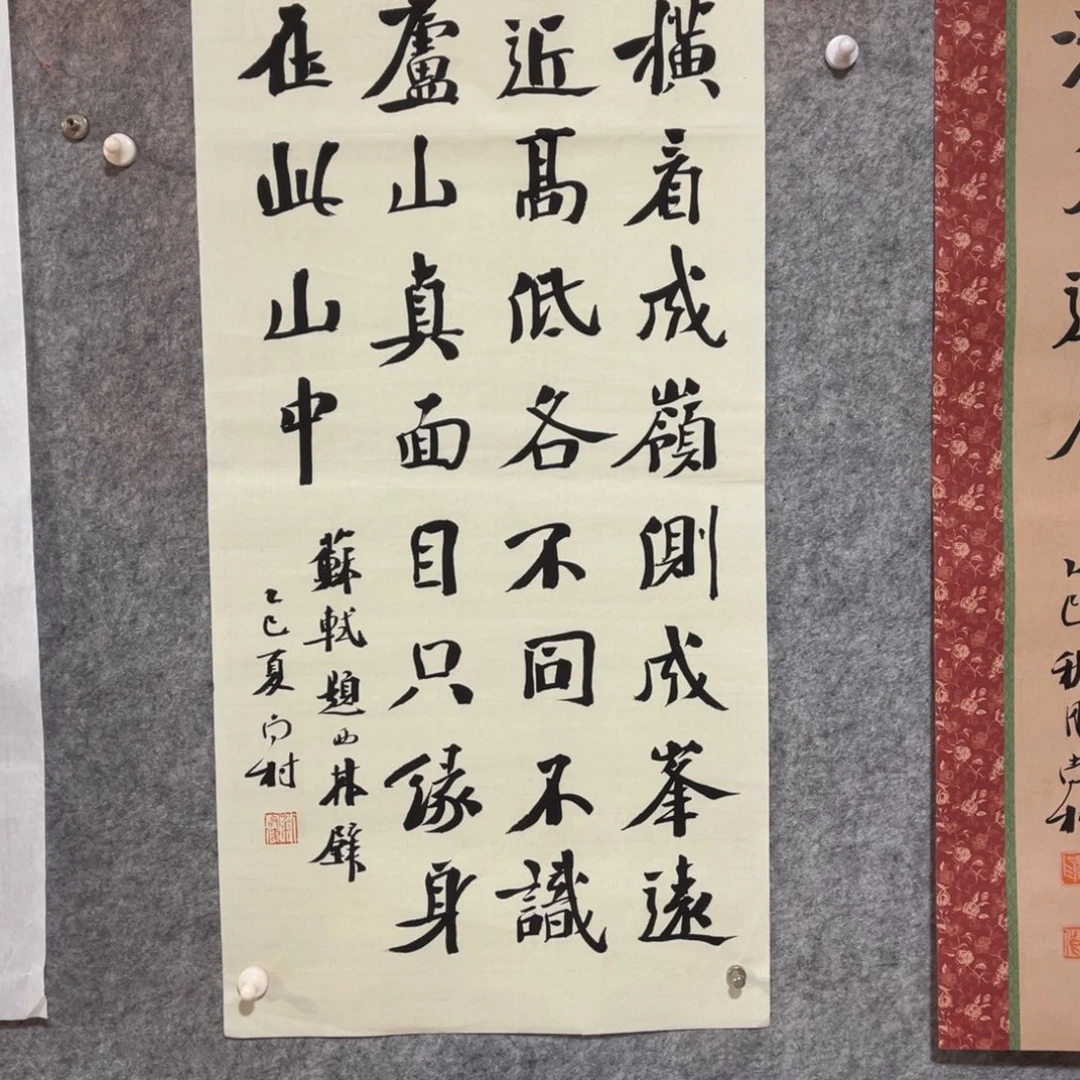 橫看成嶺側成峯遠
近高低各不同不識
廬山真面目只緣身
在此山中
蘇軾題西林壁
乙巳夏向村
乙巳秋月